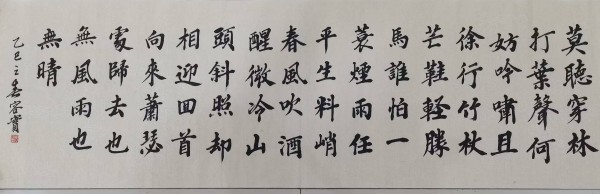 莫聽穿林
打葉聲何
妨吟嘯且
徐行竹杖
芒鞋輕勝
馬誰怕一
蓑煙雨任
平生料峭
春風吹酒
醒微冷山
頭斜照却
相迎回首
向來蕭瑟
處歸去也
無風雨也
無晴
乙巳